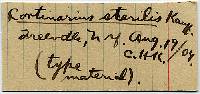 Cortinarius sterilis Kauff.
Freeville, N.Y. Aug. 19/04.
C.H.K.
(type
material).